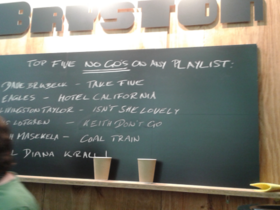 BRYSTON
TOP FIVE NO GOS ON ANY PLAYLIST:
DAVE BRUBECK - TAKE FIVE
EAGLES - HOTEL CALIFORNIA
LIVINGSTON TAYLOR - ISN'T SHE LOVELY
LOFGREN - KEITH DON'T GO
MASEKELA - COAL TRAIN
DIANA KRALL!